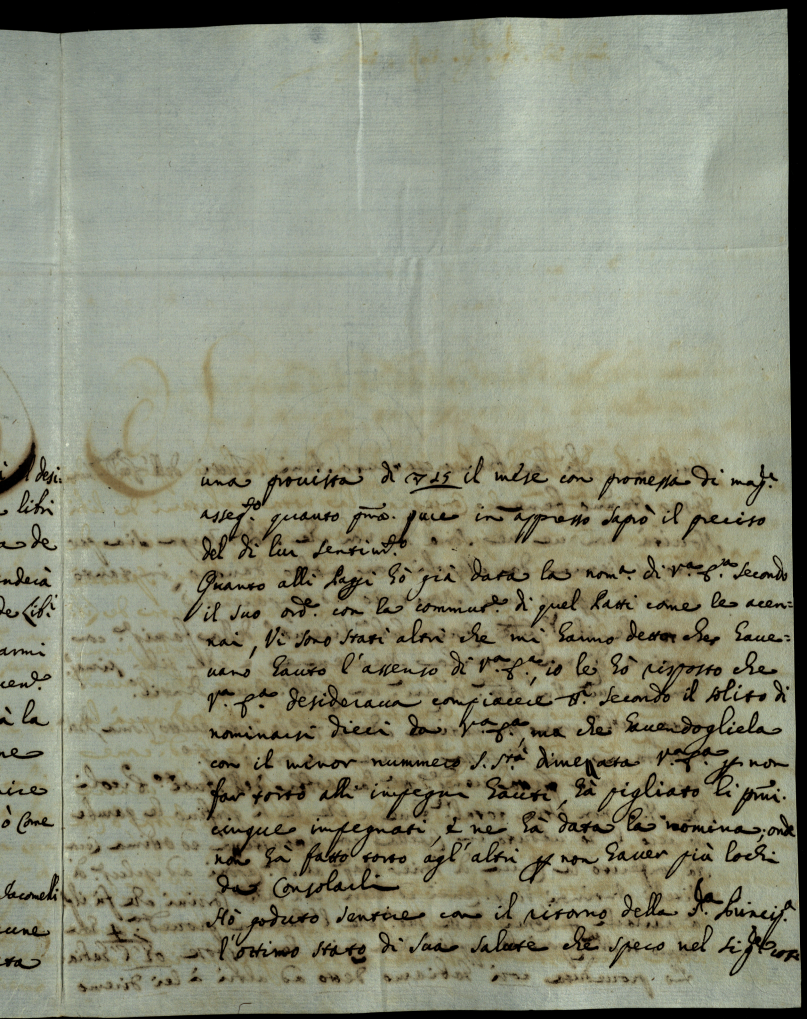 una provista di ▽ 25 il mese con promessa di mag.re
asseg.to quanto p.ma. pure in appresso saprò il preciso
del di lui sentim.to
Quanto alli Paggi hò già data la nom.a di V.a E.za secondo
il suo ord.e con la commut.e di quel Patti come le acen=
nai, Vi sono stati altri che mi hanno detto che have=
vano hauto l'assenso di V.a E.za, io le hò risposto che
V.a E.za desiderava compiacere secondo il solito di
nominarsi dieci da V.a E.za, ma che havendogliela
con il minor nummero S. S.tà V.a E.za p non
far torto alli impegni hauti, hà pigliato li p.mi
cinque impegnati, e ne hà data la nomina, onde
non hà fatto torto agl'altri p non haver più lochi
da Consolarli
Hò goduto sentire con il ritorno della S.a Princip.a
l'ottimo stato di sua salute che spero nel Sig.re
desi:
libri
de
nderà
de Lib.i
armi
à la
ò Come
Jacomelli